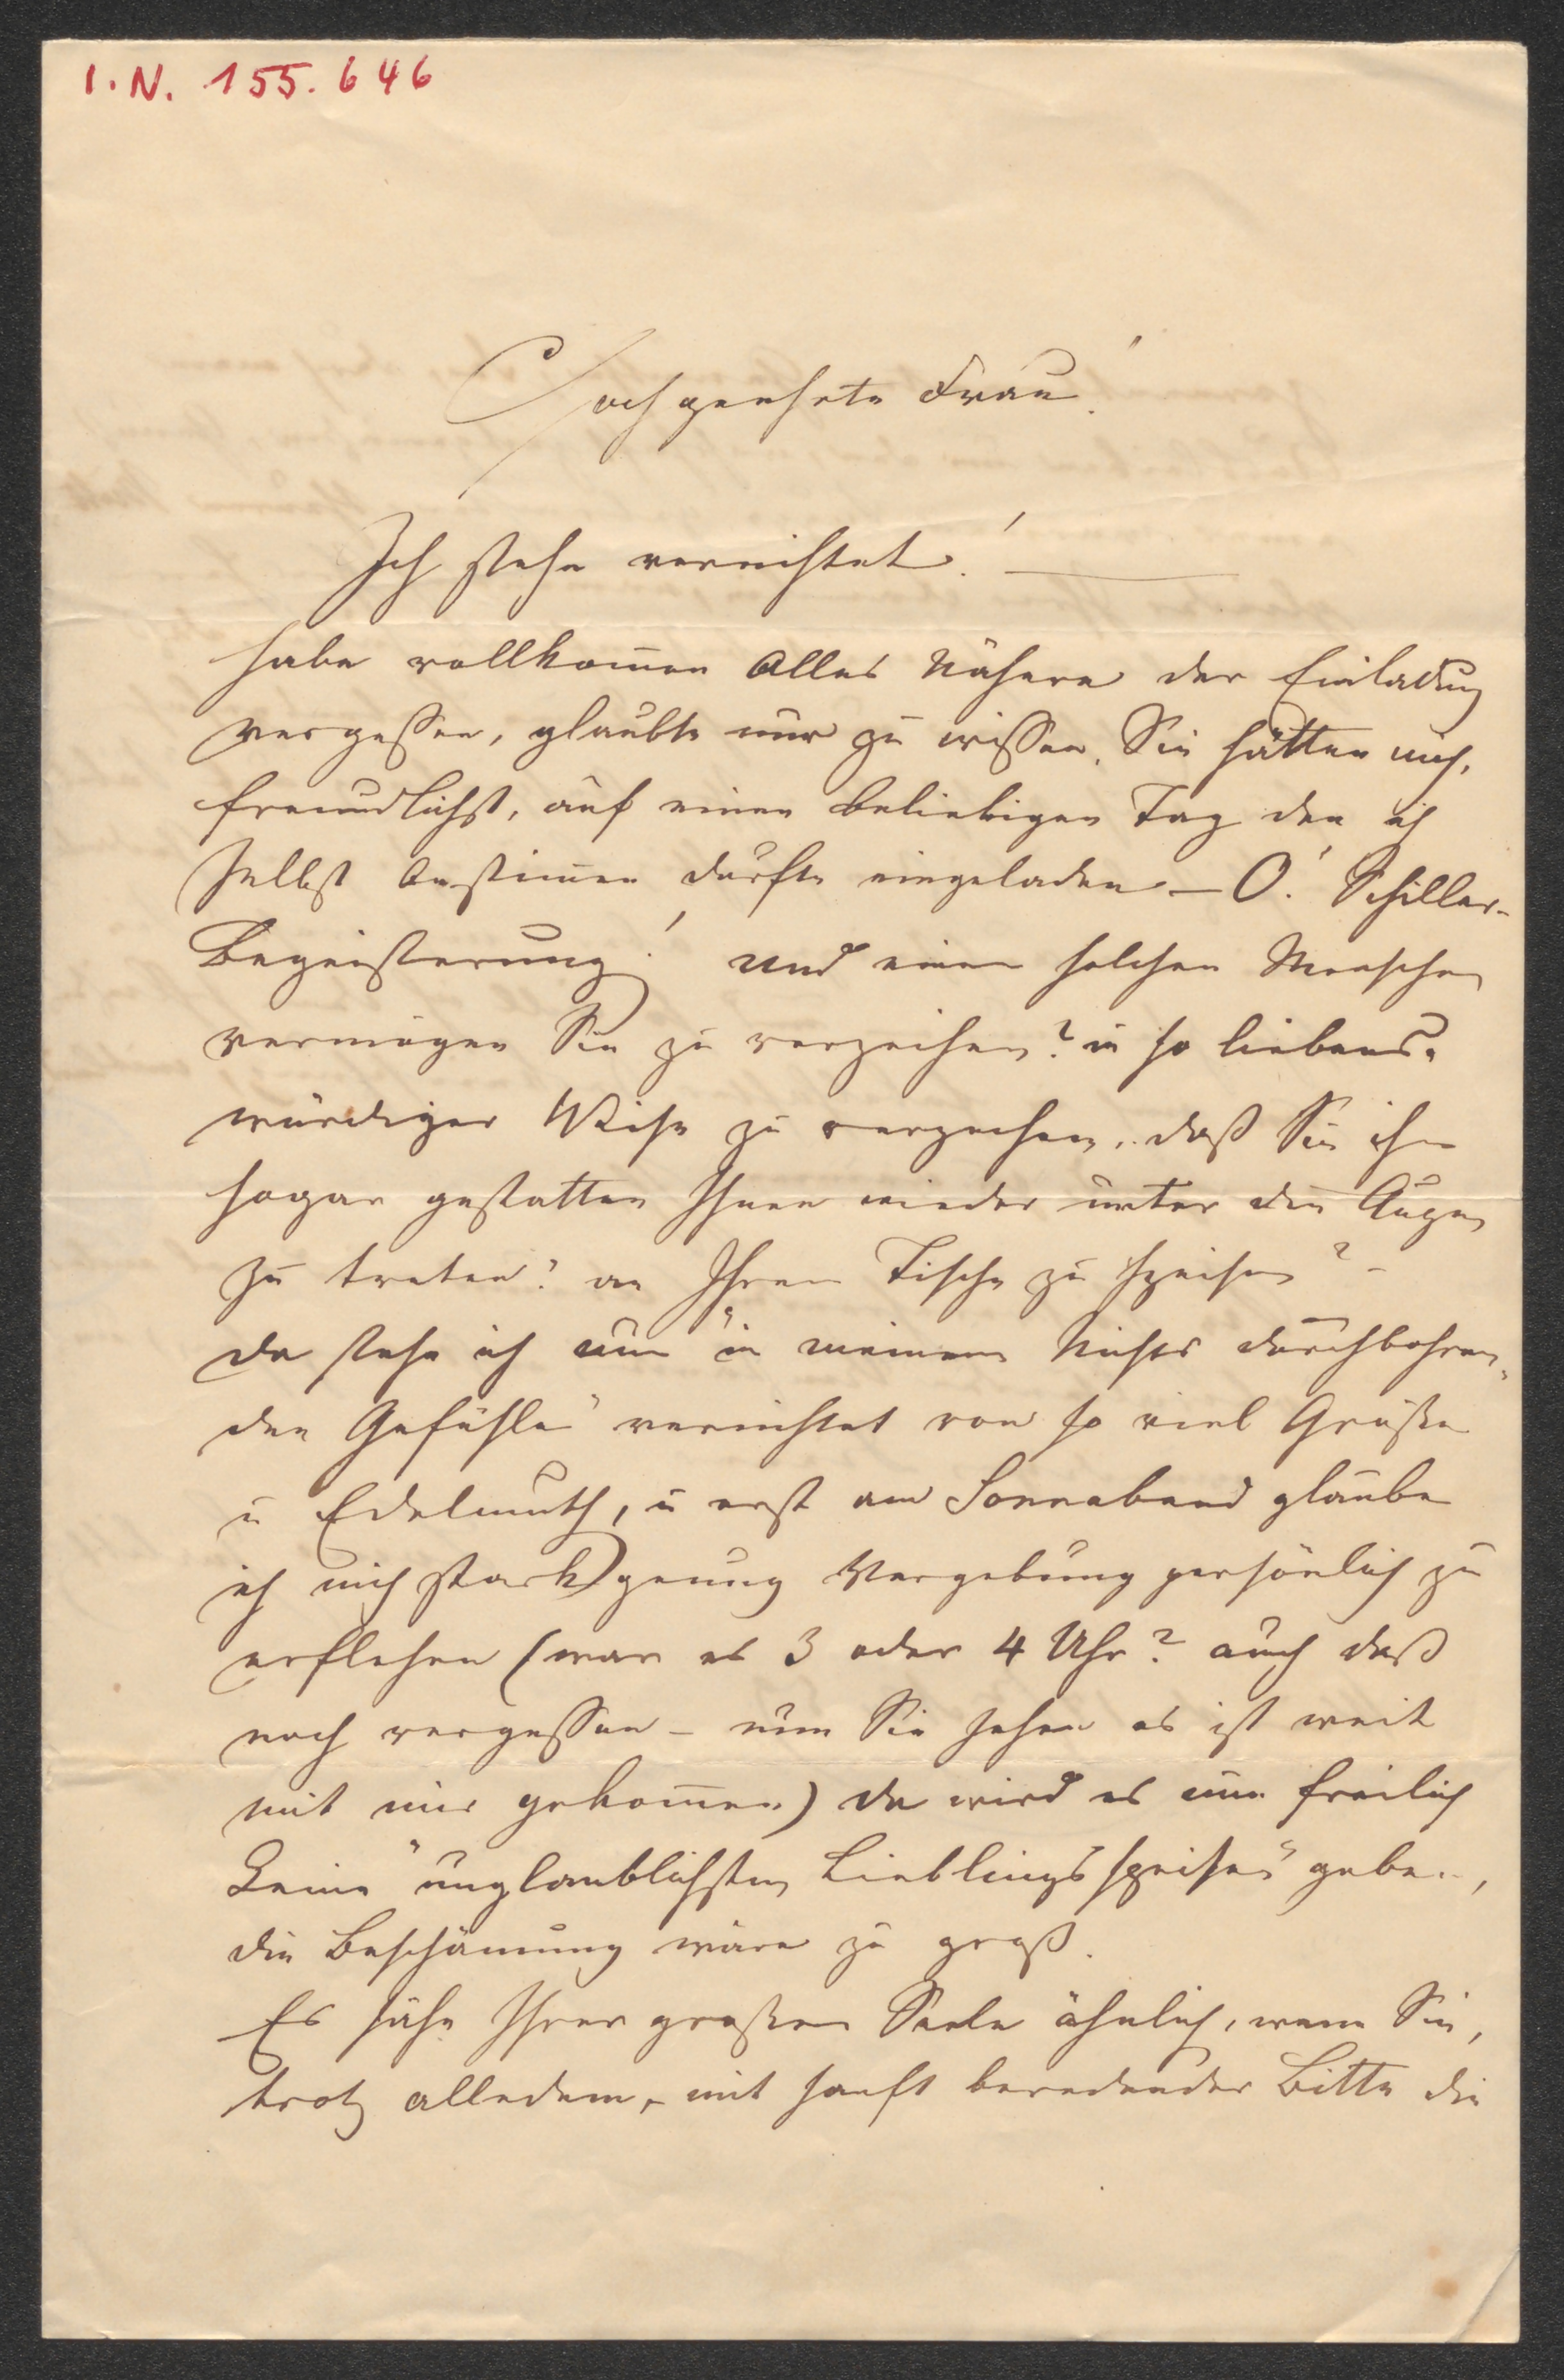 I. N. 155.646
Hochgeehrte Frau!
Ich stehe vernichtet! —
habe vollkom̅en Alles Nähere der Einladung
vergessen, glaubte nur zu wissen, Sie hätten mich,
freundlichst, auf einen beliebigen Tag den ich
selbst bestim̅en durfte eingeladen – O! Schiller-
Begeisterung! und einem solchen Menschen
vermögen Sie zu verzeihen? in so liebens-
würdiger Weise zu verzeihen, daß Sie ihm
sogar gestatten Ihnen wieder unter die Augen
zu treten? an Ihrem Tische zu speisen? –
da stehe ich nun "in meinem Nichts durchbohren-
den Gefühle" vernichtet von so viel Größe
u Edelmuth, u erst am Sonnabend glaube
ich mich stark genug Vergebung persönlich zu
erflehen (war es 3 oder 4 Uhr? auch daß
noch vergessen – nun Sie sehen es ist weit
mit mir gekom̅en) da wird es nun freilich
keine "unglaublichsten Lieblingsspeisen" geben,
die Beschämung wäre zu groß.
Es sähe Ihrer großen Seele ähnlich, wenn Sie,
trotz alledem, mit sanft beredender Bitte die